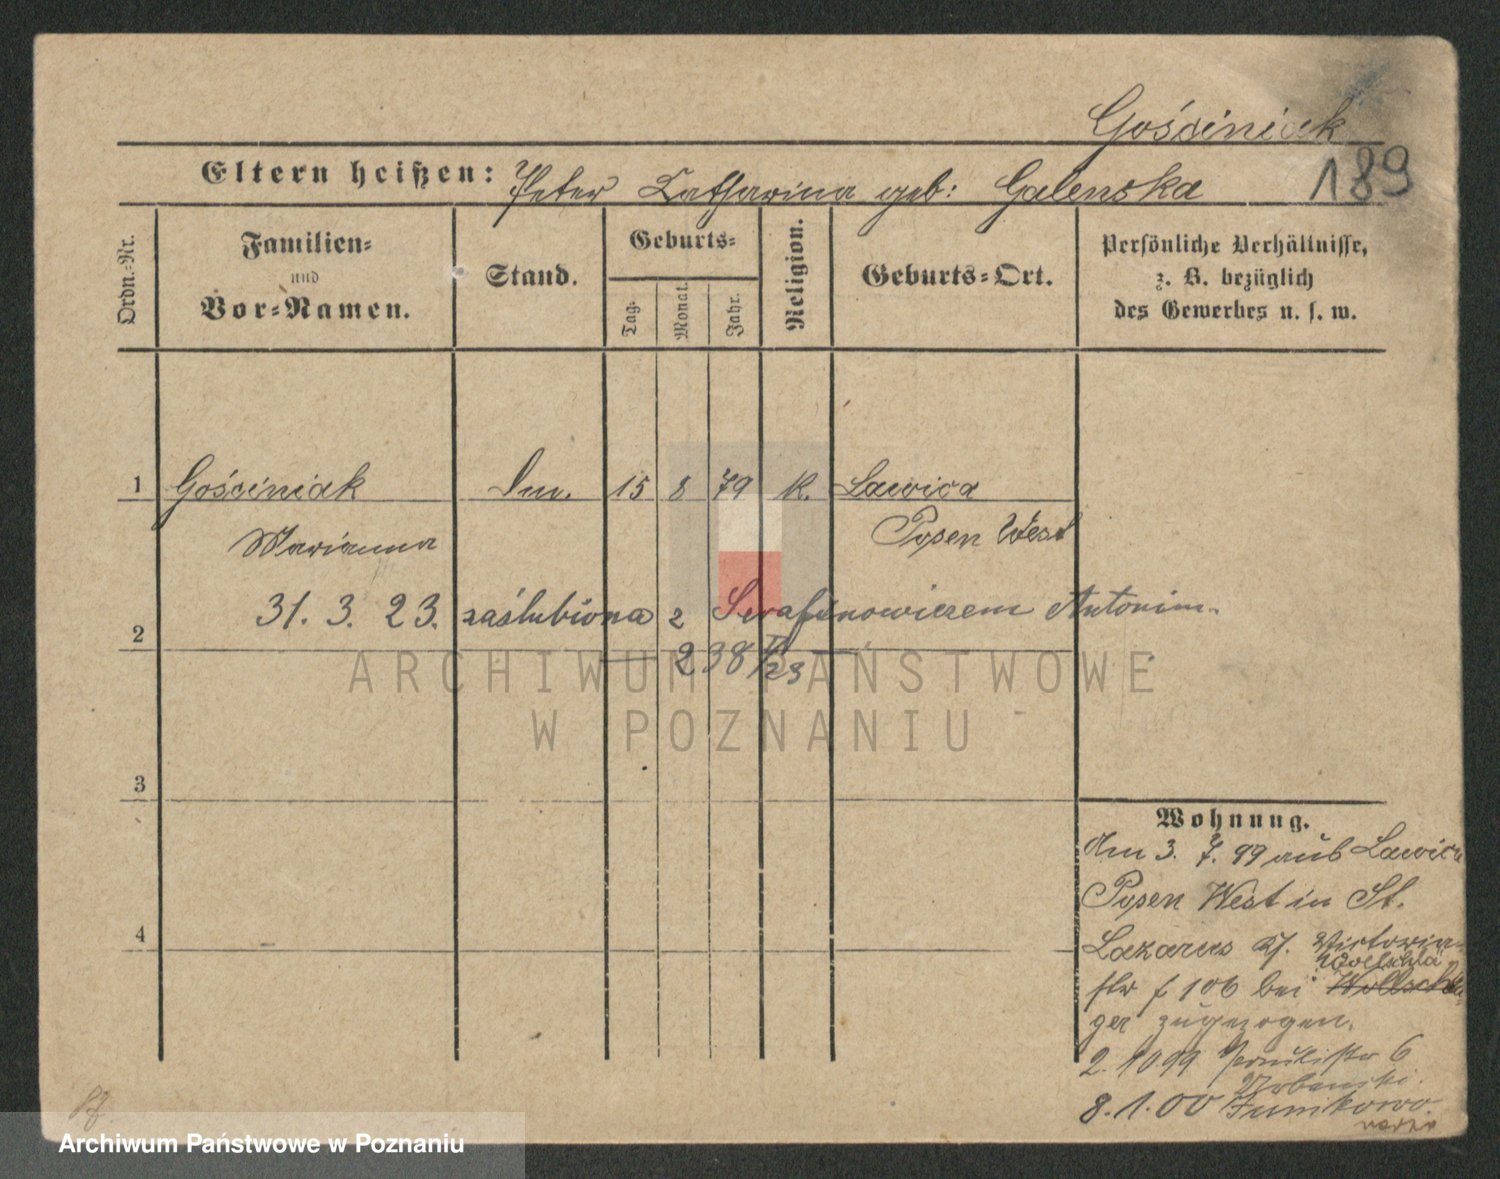 Gościniak
189
Eltern heißen: Peter Catharina geb: Galenska
Ordn.-Nr.
Familien-
und
Vor-Namen.
Stand.
Geburts-
Tag.
Monat.
Jahr.
Religion.
Geburts-Ort.
Persönliche Verhältnisse,
z. B. bezüglich
des Gewerbes u. s. w.
1 Gościniak 15 8 79 K. Lawica
Marianna Posen West
31. 3. 23. zaślubiona z Serafinowiczem Antonim.
2
238 V/23
ARCHIWUM PAŃSTWOWE
W POZNANIU
3
Wohnung.
Am 3. 7. 99 aus Lawica
Posen West in St.
4
Lazarus Victoria-
Wollschlä
str 106 bei Wollschlä
ger zugezogen.
2. 10 99 Paulistr 6
Urbanski.
8. 1. 00 Junikowo.
Archiwum Państwowe w Poznaniu